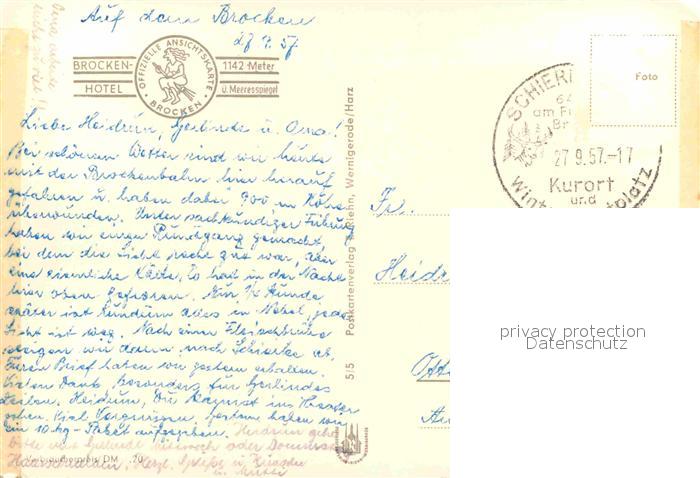 Auf dem Brocken
27.9.57
BROCKEN-HOTEL
OFFIZIELLE ANSICHTSKARTE
BROCKEN
1142 Meter
ü. Meeresspiegel
Liebe Heidrun, Gerlinde u. Oma!
Bei schönem Wetter sind wir heute
mit der Brockenbahn hier herauf
gefahren u. haben dabei 900 m Höhe
überwunden. Unter sachkundiger Führung
haben wir einen Rundgang gemacht,
bei dem die Sicht recht gut war, aber
eine eisenliche Kälte. Es hat in der Nacht
hier oben gefroren. Nur 1/4 Stunde
später ist rundum alles in Nebel, jede
Sicht ist weg. Nach einer Fleischbrühe
steigen wir dann nach Schierke ab.
Euren Brief haben wir gestern erhalten.
Vielen Dank, besonders für Gerlindes
Zeilen. Heidrun, Du kannst ins Theater
gehen. Viel Vergnügen. Gestern haben wir
ein 10 kg-Paket aufgegeben. Heidrun geh
bitte mit Gerlinde Mittwoch oder Donnerstag
Haarschneiden. Herzl. Grüße u. Küsse
u. Mutti
Verbraucherpreis DM -.20
5/5 Postkartenverlag Wernigerode/Harz
Foto
SCHIER
am F
Br
27.9.57.-17
Kurort
und
Wint platz
Fr.
Heidr
privacy protection
Datenschutz